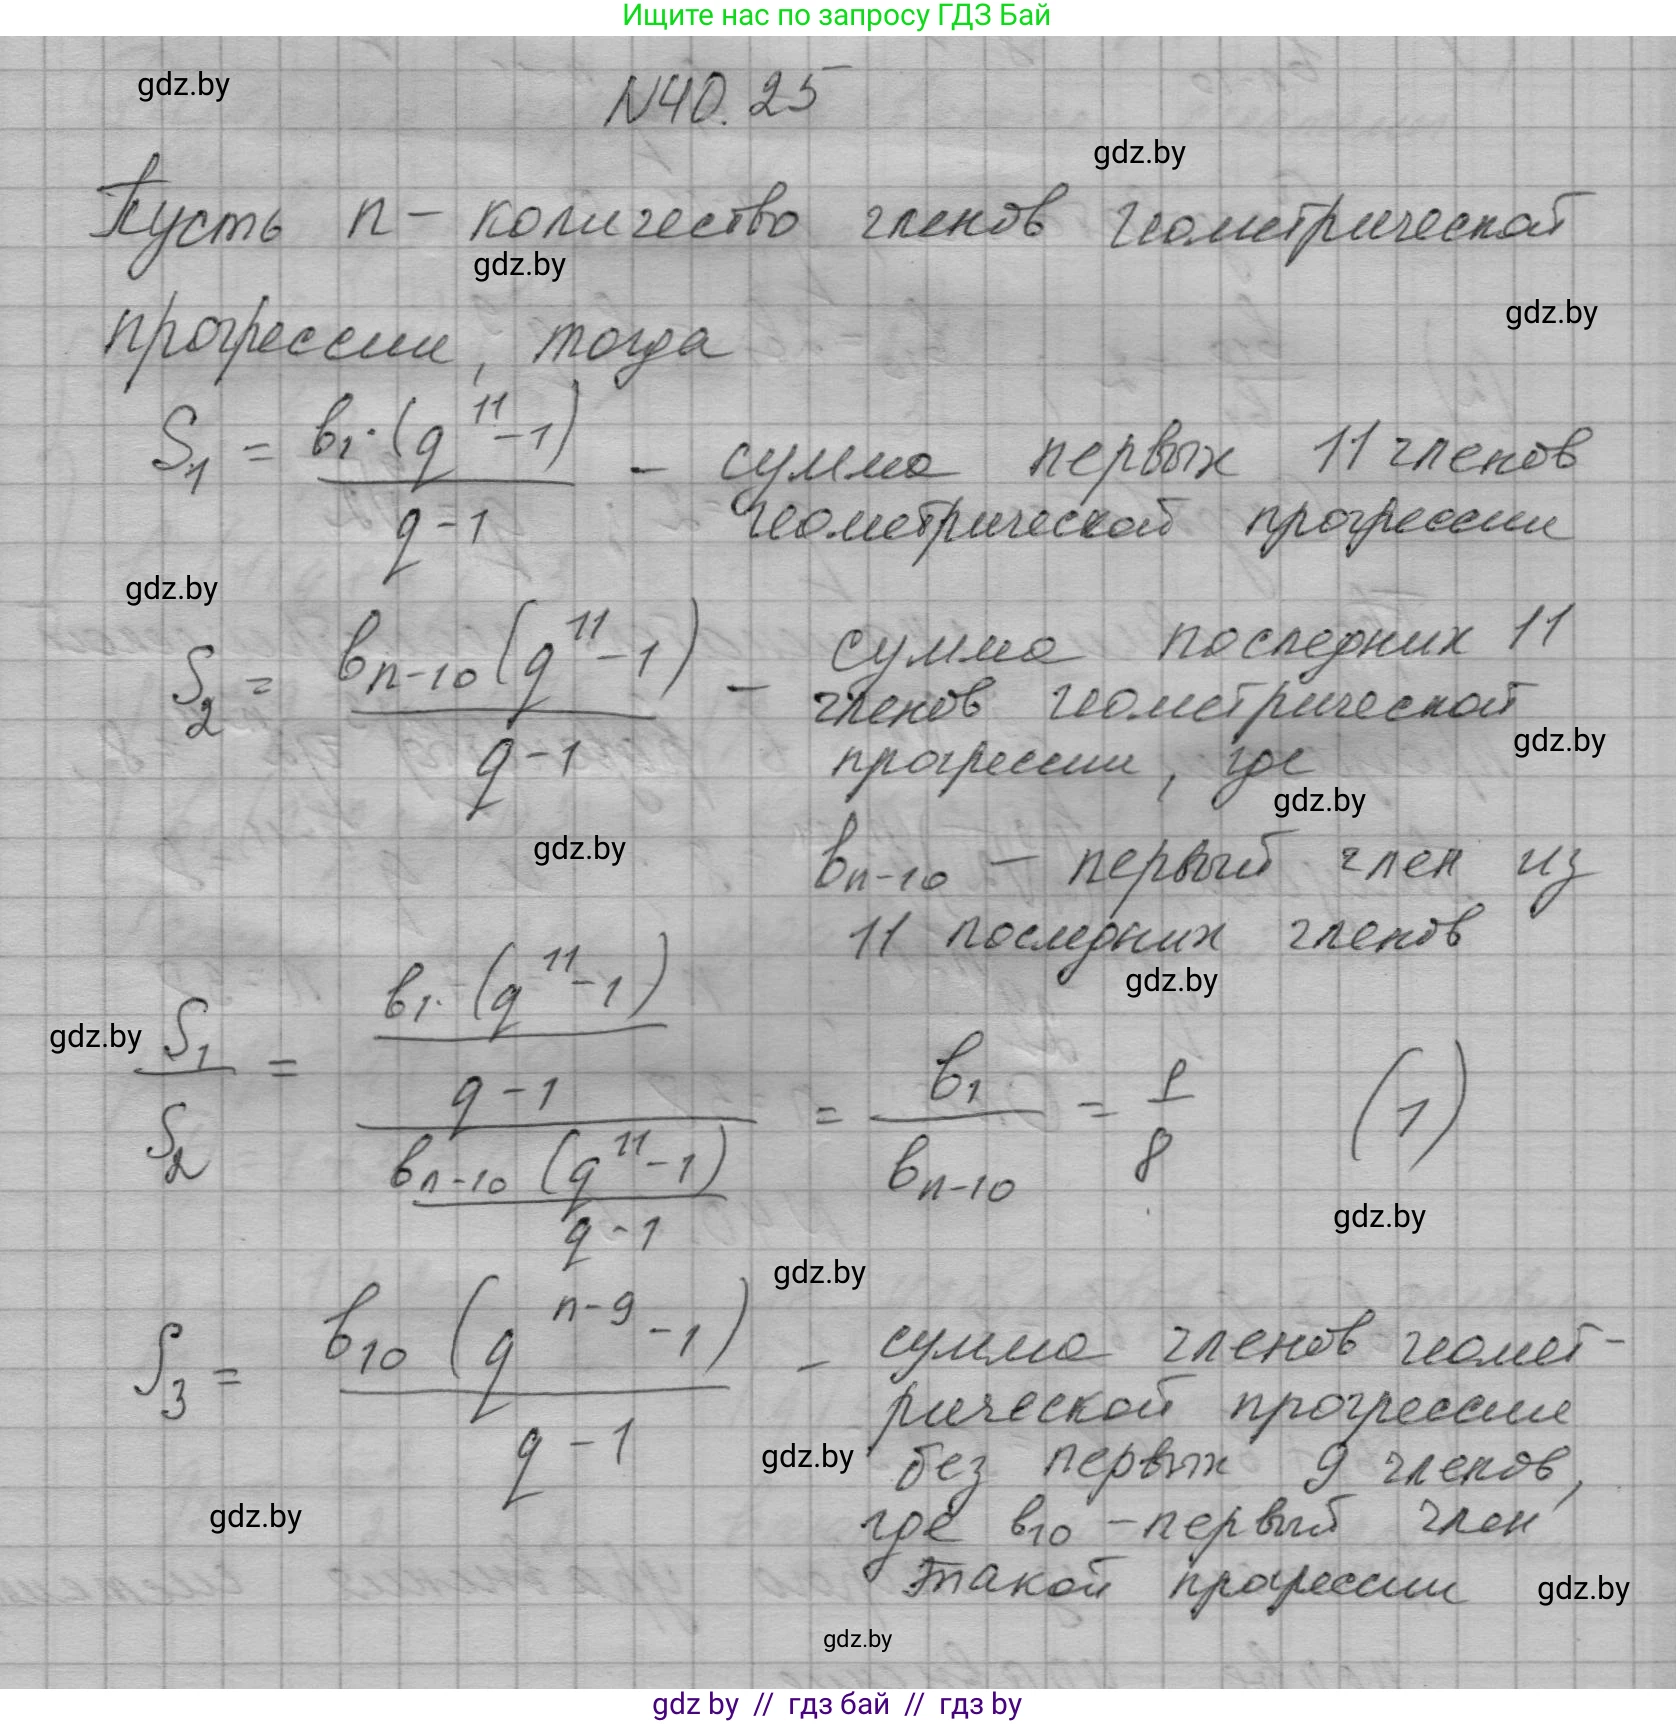 Ищите нас по запросу ГДЗ Бай
gdz.by
N40.25
gdz.by
Пусть n – количество членов геометрической
gdz.by
gdz.by
прогрессии, тогда
S₁ = b₁·(q¹¹-1) / (q-1) – сумма первых 11 членов
геометрической прогрессии
gdz.by
S₂ = bₙ₋₁₀(q¹¹-1) / (q-1) – сумма последних 11
членов геометрической
gdz.by
прогрессии, где
gdz.by
gdz.by
bₙ₋₁₀ – первый член из
11 последних членов
gdz.by
gdz.by
S₁/S₂ = (b₁·(q¹¹-1) / (q-1)) / (bₙ₋₁₀(q¹¹-1) / (q-1)) = b₁/bₙ₋₁₀ = 1/8 (1)
gdz.by
gdz.by
S₃ = b₁₀(qⁿ⁻⁹-1) / (q-1) – сумма членов геомет-
рической прогрессии
gdz.by
без первых 9 членов,
gdz.by
где b₁₀ – первый член
такой прогрессии
gdz.by
gdz.by
gdz by // гдз бай // гдз by